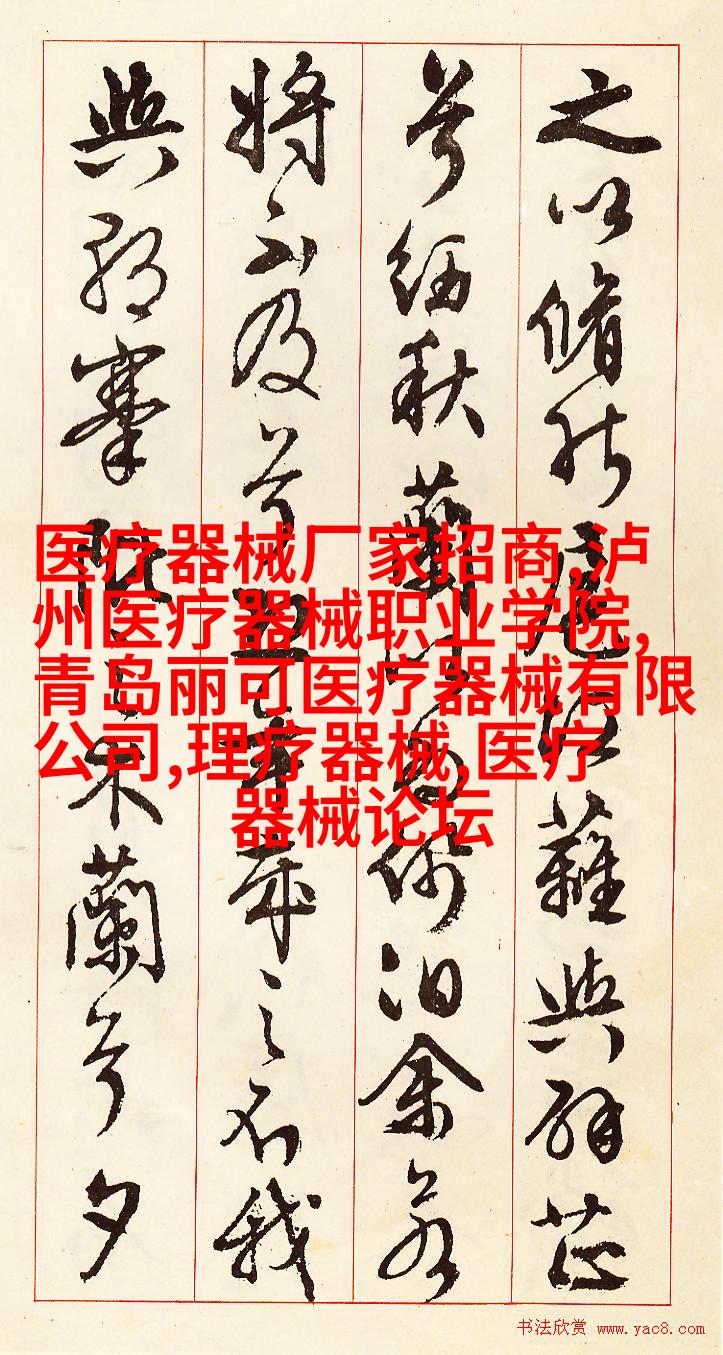 之以脩能扈江蘺與辟芷
兮紉秋蘭以為佩汩余若
將不及兮恐年歲之不我
與朝搴阰之木蘭兮夕
医疗器械厂家招商,泸
州医疗器械职业学院,
青岛丽可医疗器械有限
公司,理疗器械,医疗
器械论坛
书法欣赏 www.yac8.com